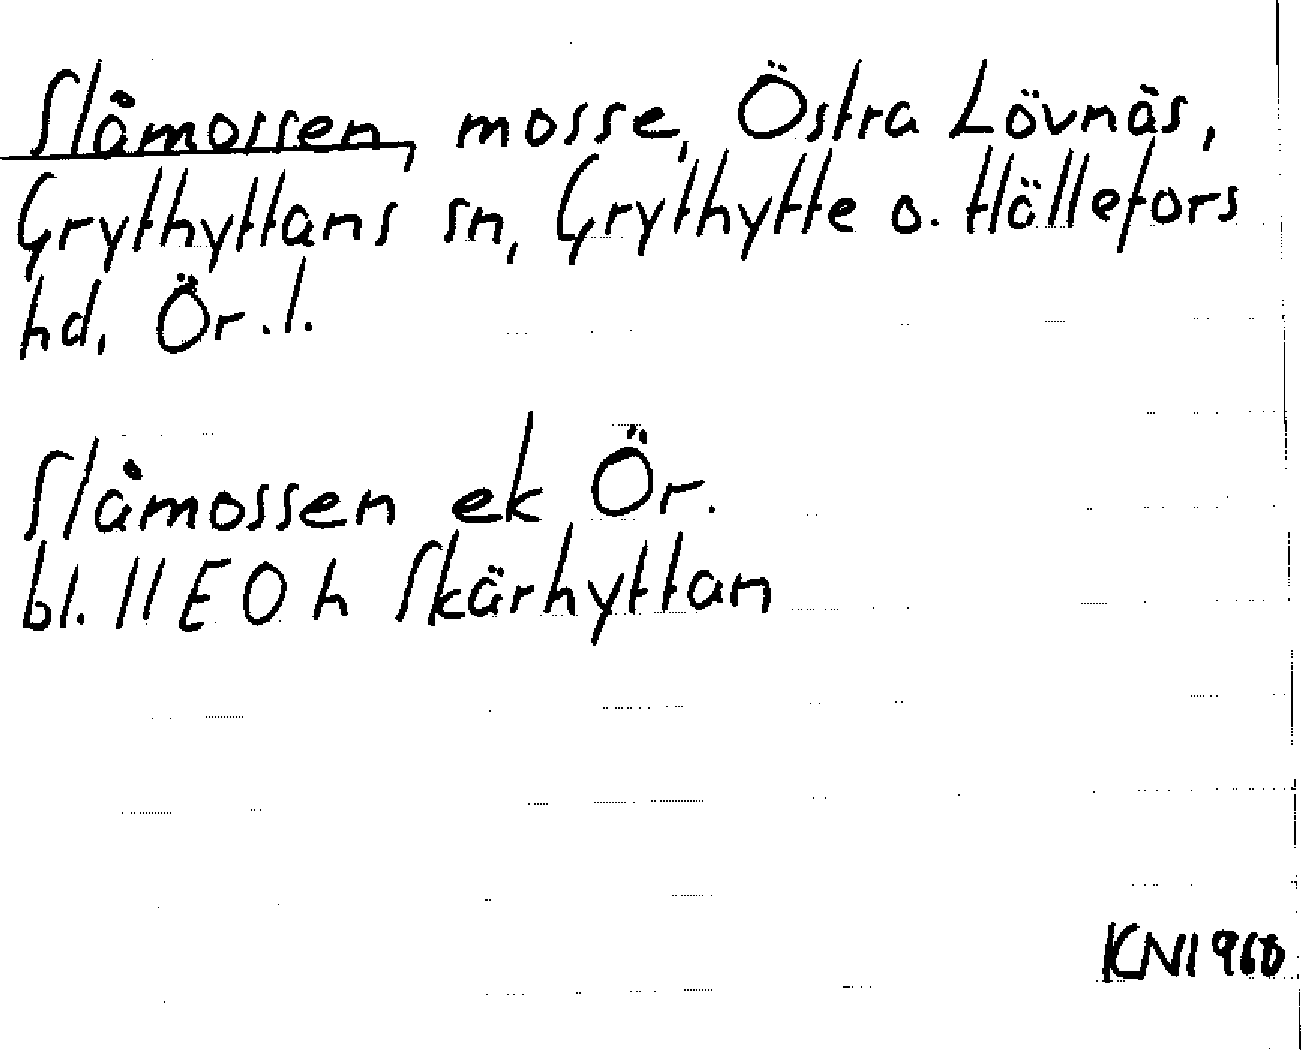 Slåmossen, mosse, Östra Lövnäs,
Grythyttans sn, Grythytte o. Hällefors
hd, Ör. l.
Slåmossen ek Ör.
bl. 11 E 0 h Skärhyttan
KN1960